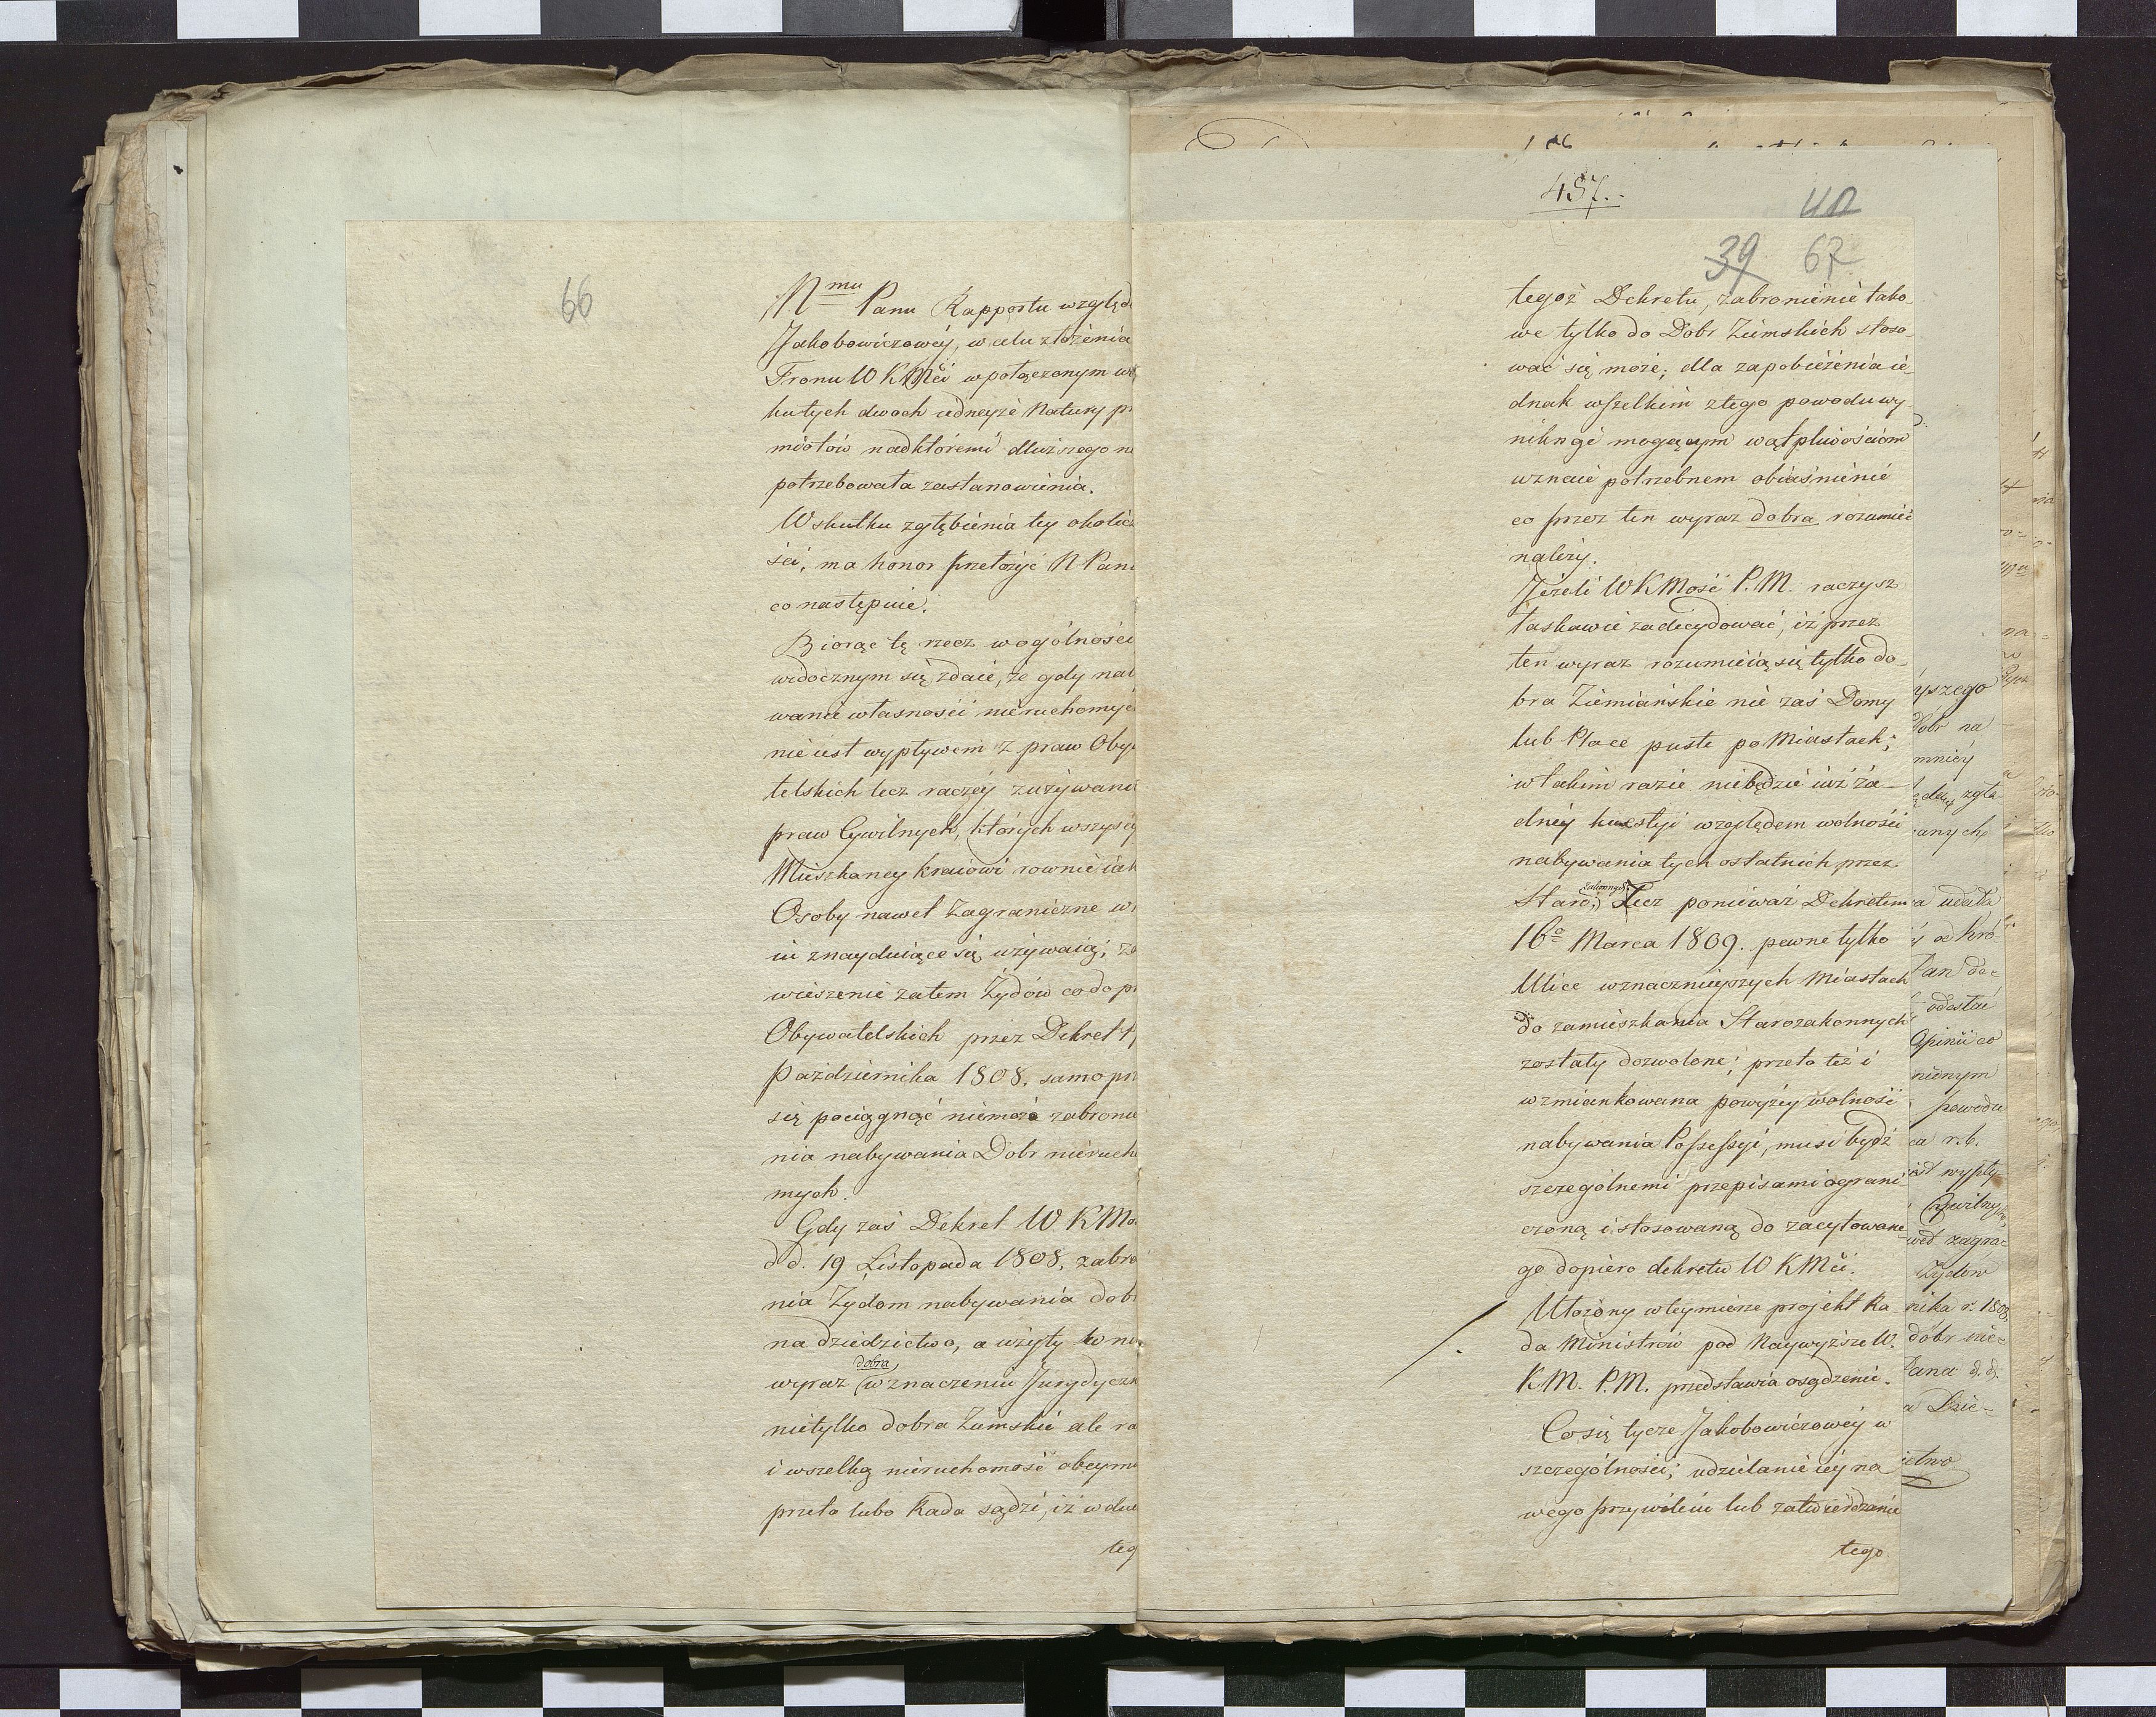 66
Nmu Panu Rapportu względ
Jakobowiczowéy, w celu złożenia
Tronu WKMci w połączonym
ku tych dwoch iedneyże Natury
miotów nad ktöremi dłuższego
potrzebowała zastanowienia.
W skutku zgłębienia tey okolicz
ści, ma honor przełożyć N Panu
co następuie.
Biorąc tę rzecz w ogólności
widocznym się zdaie, że gdy nab
wanie własności nieruchomych
nie iest wypływem z praw Oby
telskich lecz raczéy używania
praw Cywilnych, których wszyscy
Mieszkańcy kraiowi rownie iak
Osoby nawet Zagraniczne w
iu znayduiące się używaią; za
wieszenie zatem Żydów co do pr
Obywatelskich przez Dekret 17
Października 1808, samo prz
się pociągnąć niemoże zabronie
nia nabywania Dobr nieruch
mych.
Gdy zaś Dekret WKMo
d d. 19 Listopada 1808, zabra
nia Żydom nabywania dobr
na dziedzictwo, a użyty w n
dobra,
wyraz w znaczeniu Jurydyczn
nietylko dobra Ziemskie ale ra
i wszelką nieruchomość obeymu
przeto lubo Rada sądzi, iż w du
teg
457.
39 67
tegoż Dekretu, zabronienie tako
we tylko do Dobr Ziemskich stoso
wać się może; dla zapobieżenia ie
dnak wszelkim z tego powodu wy
niknąć mogącym wątpliwościom
uznaie potrzebnem obiaśnienie
co przez ten wyraz dobra rozumieć
należy.
Jeżeli WKMość P.M. raczysz
łaskawie zadecydować, iż przez
ten wyraz rozumieią się tylko do
bra Ziemiańskie nie zaś Domy
lub Place puste po Miastach;
w takim razie niebędzie iuż ża
dnéy kwestyi względem wolności
nabywania tych ostatnich przez
zakonnych
Staro; Lecz ponieważ Dekretem
16o Marca 1809. pewne tylko
Ulice w znacznieyszych Miastach
do zamieszkania Starozakonnych
zostały dozwolone; przeto też i
wzmiankowana powyżéy wolność
nabywania Possessyi, musi bydź
szczególnemi przepisami ograni
czoną i stosowaną do zacytowane
go dopiero dekretu WKMci.
Ułożony w tey mierze projekt Ra
da Ministrów pod Naywyższe W.
KM. P.M. przedstawia osądzenie.
Co się tycze Jakobowiczowéy w
szczególności; udzielanie iéy no
wego przywileiu lub zatwierdzenie
tego
yszego
dóbr na
mniéy
zgła
anych
a udała
y od Kró
Pan do
odostać
Opinii co
nionym
powodu
ca r.b.
iest wypły
Cywilnych,
wet zagra
Żydów
nika r. 1808
dóbr nie
Pana d. d.
a Dzie
ictwo